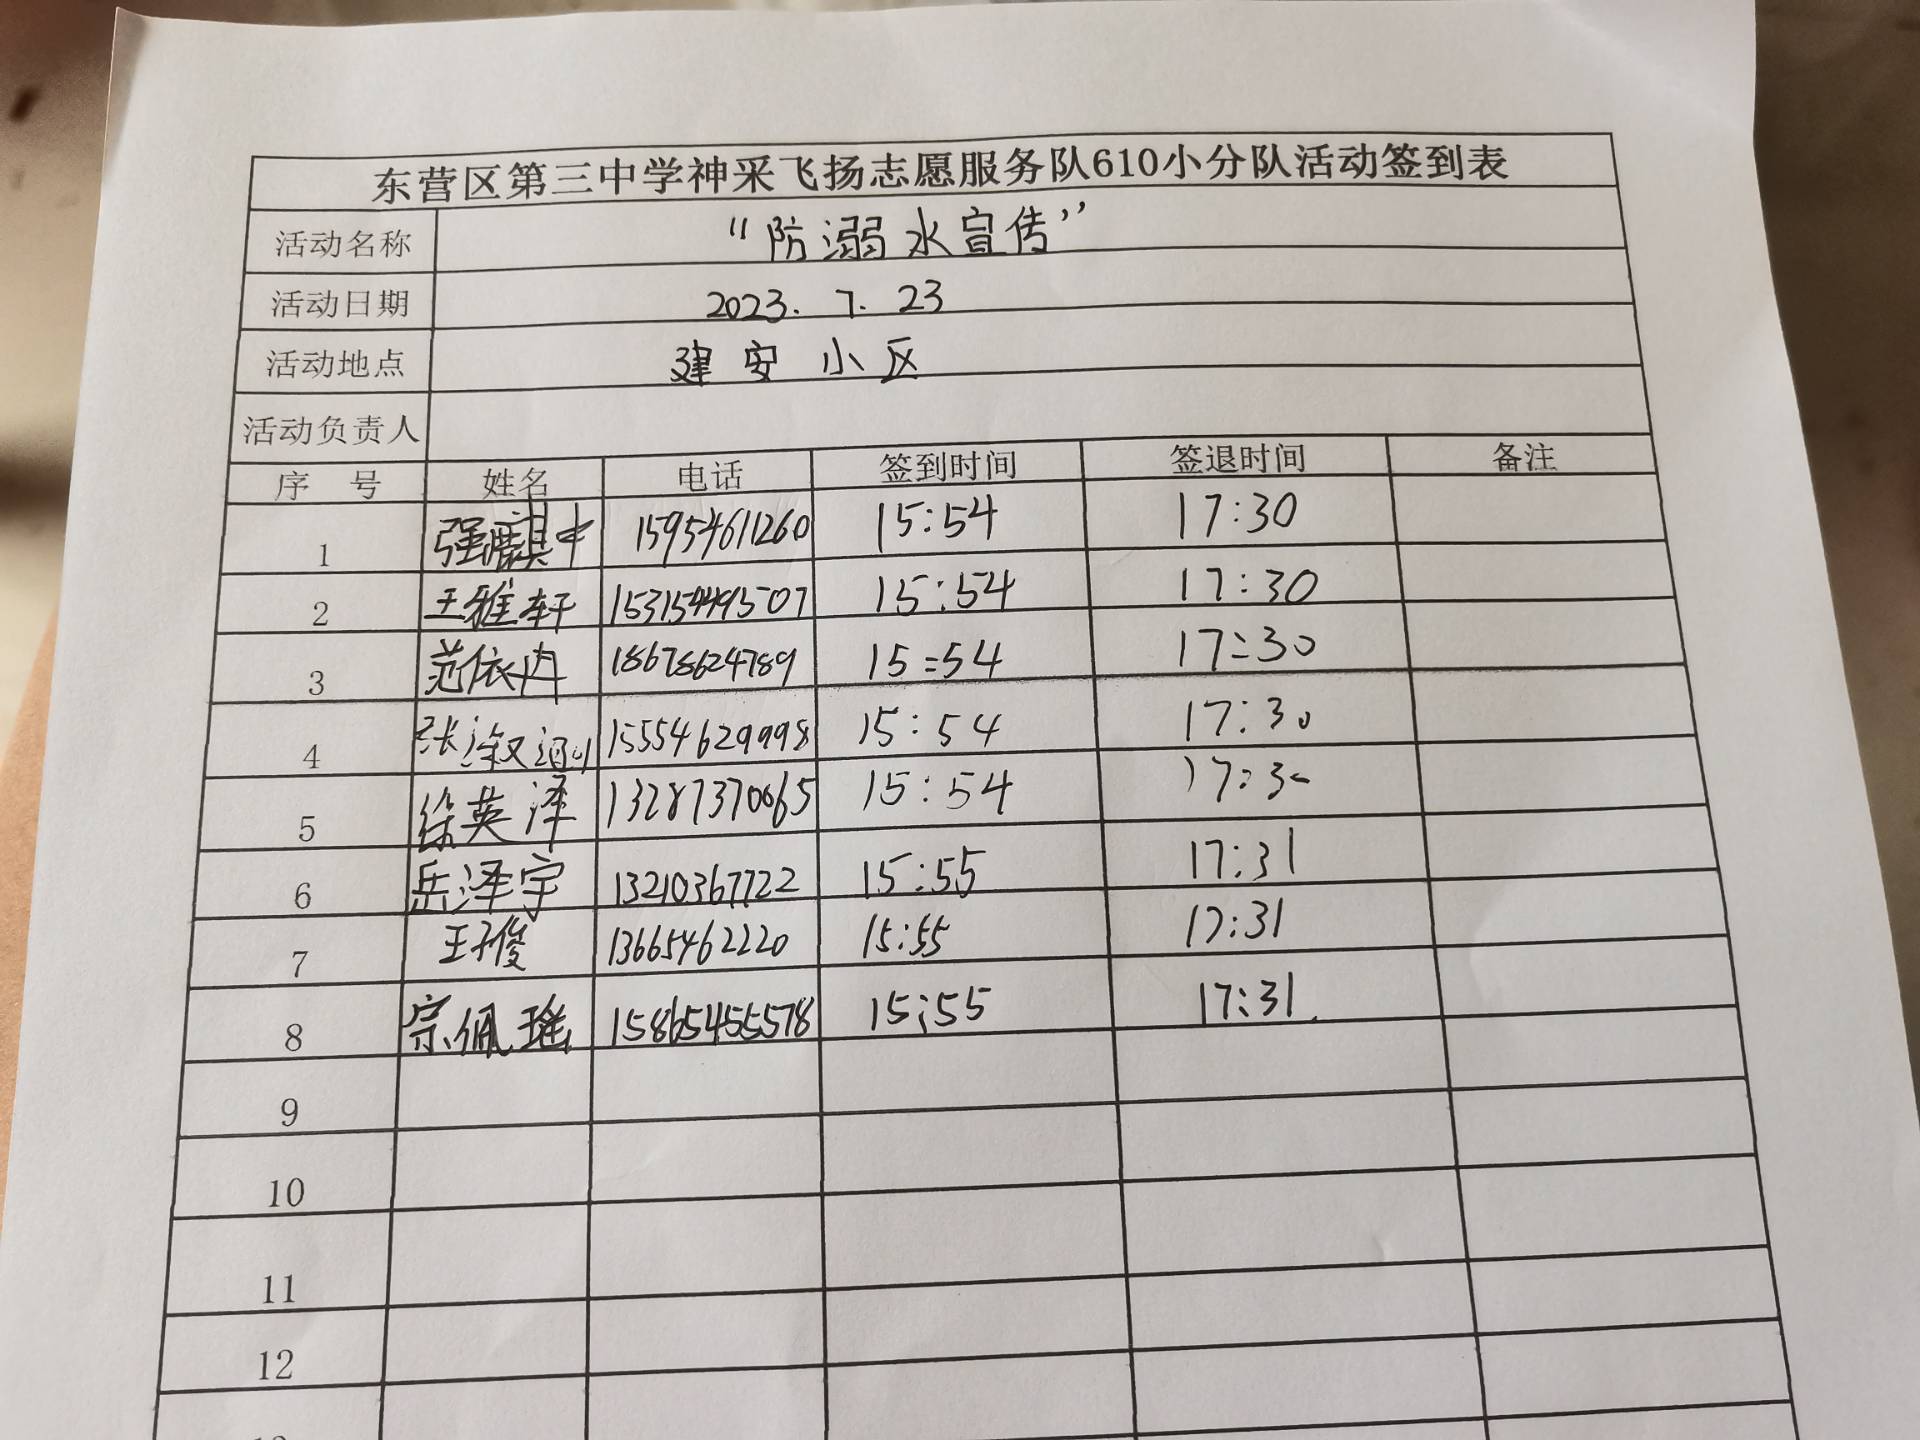 东营区第三中学神采飞扬志愿服务队610小分队活动签到表
活动名称 “防溺水宣传”
活动日期 2023.7.23
活动地点 建安小区
活动负责人
序 号 姓名 电话 签到时间 签退时间 备注
1 15954611260 15:54 17:30
2 王雅轩 15:54 17:30
3 范依冉 18678624789 15:54 17:30
4 15554629998 15:54 17:30
5 徐英泽 13287370065 15:54 17:30
6 岳泽宇 13210367722 15:55 17:31
7 王子俊 13665462220 15:55 17:31
8 宗佩瑶 15865455578 15:55 17:31
9
10
11
12